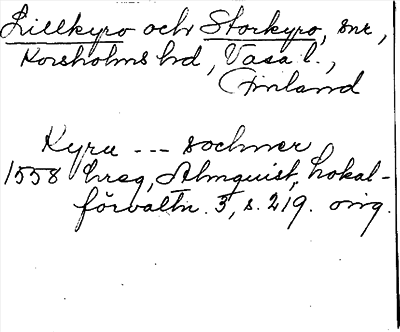 Lillkyro och Storkyro, snr,
Korsholms hd, Vasa l.,
Finland
Kyru --- sochner
1558 hreg, Almquist, Lokal-
förvaltn. 3, s. 219. orig.